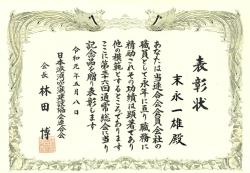 表彰状
末永一雄殿
あなたは当連合会会員会社の
職員として永年に亘り職務に
精励されその功績は顕著であり
他の模範とするところであります
ここに第三十六回通常総会に当り
記念品を贈り表彰します
令和元年五月八日
会長 林田 博